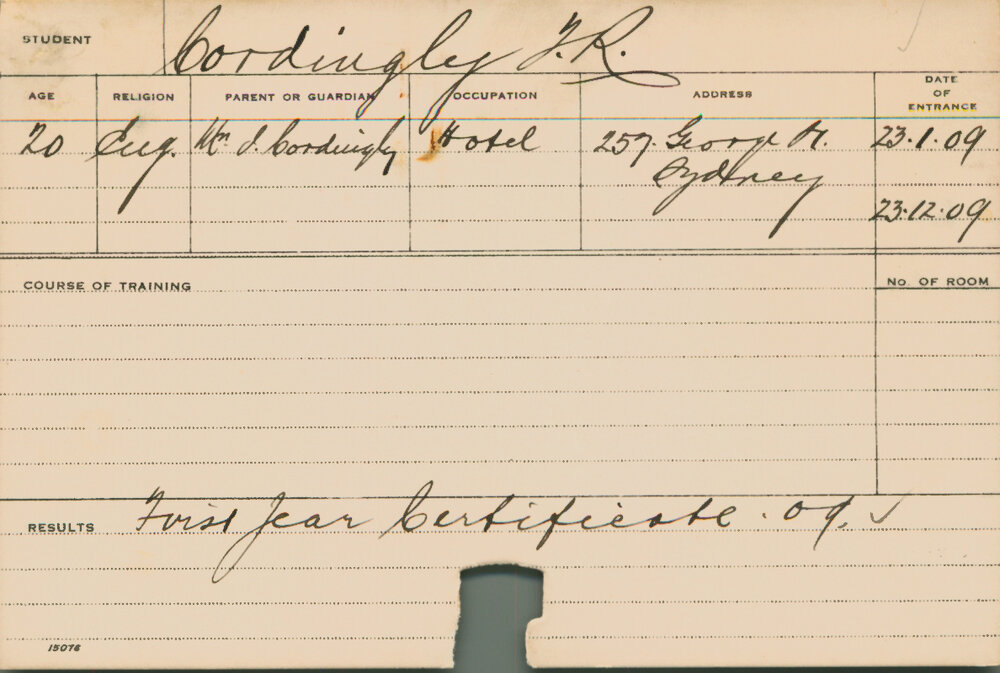 STUDENT Cordingly F. R.
AGE RELIGION PARENT OR GUARDIAN OCCUPATION ADDRESS DATE OF ENTRANCE
20 Eng. Wm J. Cordingly Hotel 257. George St. 23.1.09
Sydney
23.12.09
COURSE OF TRAINING No. OF ROOM
RESULTS First Year Certificate. 09. ✓
15076